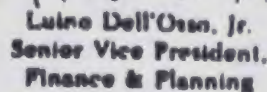 Luino Dell'Osso, Jr.
Senior Vice President,
Finance & Planning